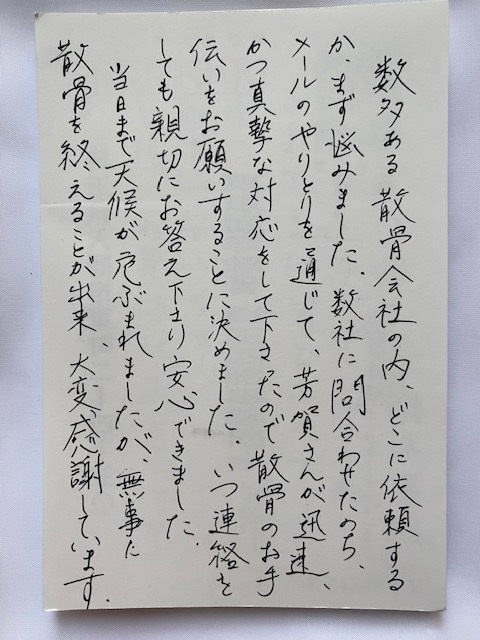 数多ある散骨会社の内、どこに依頼する
か、まず悩みました。数社に問合わせたのち、
メールのやりとりを通じて、芳賀さんが迅速、
かつ真摯な対応をして下さったので散骨のお手
伝いをお願いすることに決めました。いつ連絡を
しても親切にお答え下さり安心できました。
当日まで天候が危ぶまれましたが、無事に
散骨を終えることが出来、大変感謝しています。